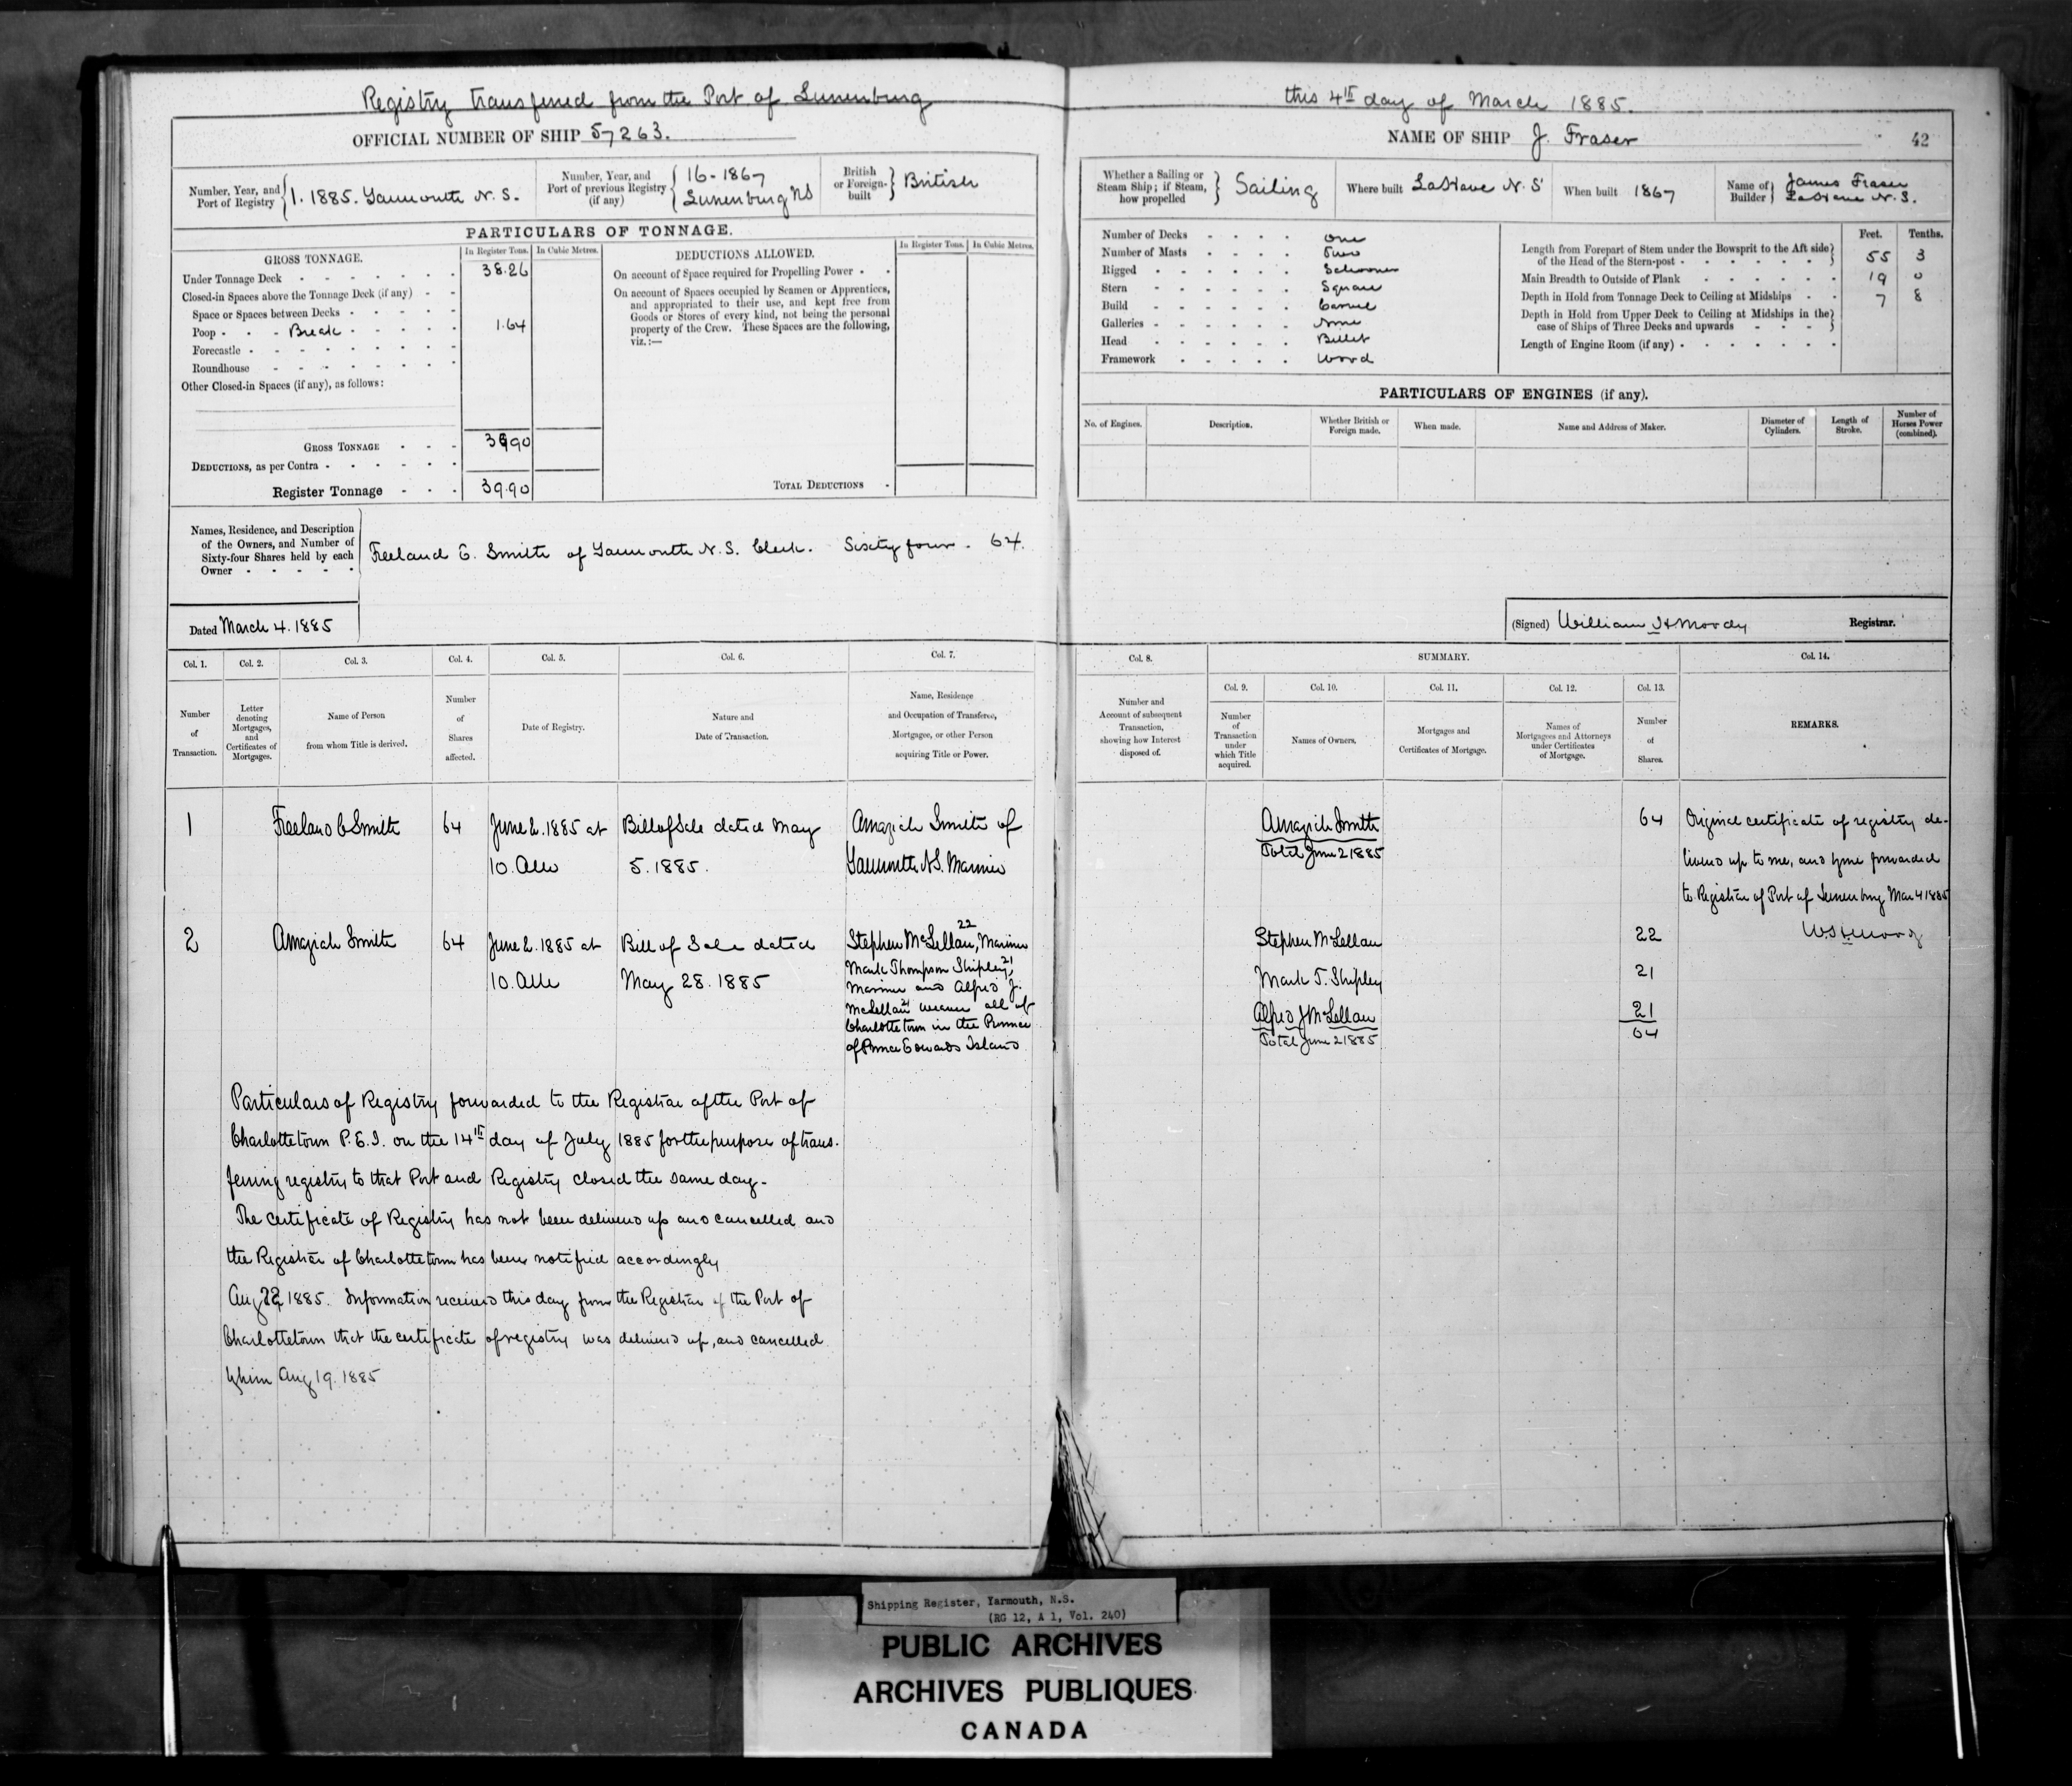 Registry transferred from the Port of Lunenburg
this 4th day of March 1885.
OFFICIAL NUMBER OF SHIP 57263.
NAME OF SHIP J. Fraser
42
Number, Year, and Port of Registry
1. 1885. Yarmouth N. S.
Number, Year, and Port of previous Registry (if any)
16-1867
Lunenburg NS
British or Foreign-built
British
Whether a Sailing or Steam Ship; if Steam, how propelled
Sailing
Where built LaHave N. S
When built 1867
Name of Builder
James Fraser
LaHave N. S.
PARTICULARS OF TONNAGE.
GROSS TONNAGE.
In Register Tons.
In Cubic Metres.
Under Tonnage Deck 38.26
Closed-in Spaces above the Tonnage Deck (if any)
Space or Spaces between Decks
Poop Break 1.64
Forecastle
Roundhouse
Other Closed-in Spaces (if any), as follows:
GROSS TONNAGE 39.90
DEDUCTIONS, as per Contra
Register Tonnage 39.90
DEDUCTIONS ALLOWED.
In Register Tons.
In Cubic Metres.
On account of Space required for Propelling Power
On account of Spaces occupied by Seamen or Apprentices,
and appropriated to their use, and kept free from
Goods or Stores of every kind, not being the personal
property of the Crew. These Spaces are the following,
viz.:—
TOTAL DEDUCTIONS
Number of Decks One
Number of Masts Two
Rigged Schooner
Stern Square
Build Carvel
Galleries None
Head Billet
Framework Wood
Feet. Tenths.
Length from Forepart of Stem under the Bowsprit to the Aft side
of the Head of the Stern-post 55 3
Main Breadth to Outside of Plank 19 0
Depth in Hold from Tonnage Deck to Ceiling at Midships 7 8
Depth in Hold from Upper Deck to Ceiling at Midships in the
case of Ships of Three Decks and upwards
Length of Engine Room (if any)
PARTICULARS OF ENGINES (if any).
No. of Engines.
Description.
Whether British or Foreign made.
When made.
Name and Address of Maker.
Diameter of Cylinders.
Length of Stroke.
Number of Horses Power (combined).
Names, Residence, and Description
of the Owners, and Number of
Sixty-four Shares held by each
Owner
Freeland C. Smith of Yarmouth N. S. Clerk. Sixty four. 64.
Dated March 4. 1885
(Signed) William H Moody Registrar.
Col. 1.
Col. 2.
Col. 3.
Col. 4.
Col. 5.
Col. 6.
Col. 7.
Col. 8.
SUMMARY.
Col. 14.
Col. 9.
Col. 10.
Col. 11.
Col. 12.
Col. 13.
Number of Transaction.
Letter denoting Mortgages, and Certificates of Mortgages.
Name of Person from whom Title is derived.
Number of Shares affected.
Date of Registry.
Nature and Date of Transaction.
Name, Residence and Occupation of Transferee, Mortgagee, or other Person acquiring Title or Power.
Number and Account of subsequent Transaction, showing how Interest disposed of.
Number of Transaction under which Title acquired.
Names of Owners.
Mortgages and Certificates of Mortgage.
Names of Mortgagees and Attorneys under Certificates of Mortgage.
Number of Shares.
REMARKS.
1
Freeland C Smith
64
June 2. 1885 at
10. AM
Bill of Sale dated May
5. 1885.
Amaziah Smith of
Yarmouth N.S. Mariner
Amaziah Smith
Total June 2 1885
64
Original certificate of registry de-
livered up to me, and by me forwarded
to Registrar of Port of Lunenburg Mar 4 1885
WH Moody
2
Amaziah Smith
64
June 2. 1885 at
10. AM
Bill of Sale dated
May 28. 1885
22
Stephen McLellan, Mariner
Mark Thompson Shipley 21,
Mariner and Alfred J.
McLellan 21 all of
Charlottetown in the Province
of Prince Edwards Island
Stephen McLellan
22
Mark T. Shipley
21
Alfred J McLellan
21
Total June 2 1885
64
Particulars of Registry forwarded to the Registrar of the Port of
Charlottetown P. E. I. on the 14th day of July 1885 for the purpose of trans-
ferring registry to that Port and Registry closed the same day.
The certificate of Registry has not been delivered up and cancelled and
the Registrar of Charlottetown has been notified accordingly
Aug 22 1885. Information received this day from the Registrar of the Port of
Charlottetown that the certificate of registry was delivered up, and cancelled
by him Aug 19. 1885
Shipping Register, Yarmouth, N.S.
(RG 12, A 1, Vol. 240)
PUBLIC ARCHIVES
ARCHIVES PUBLIQUES
CANADA